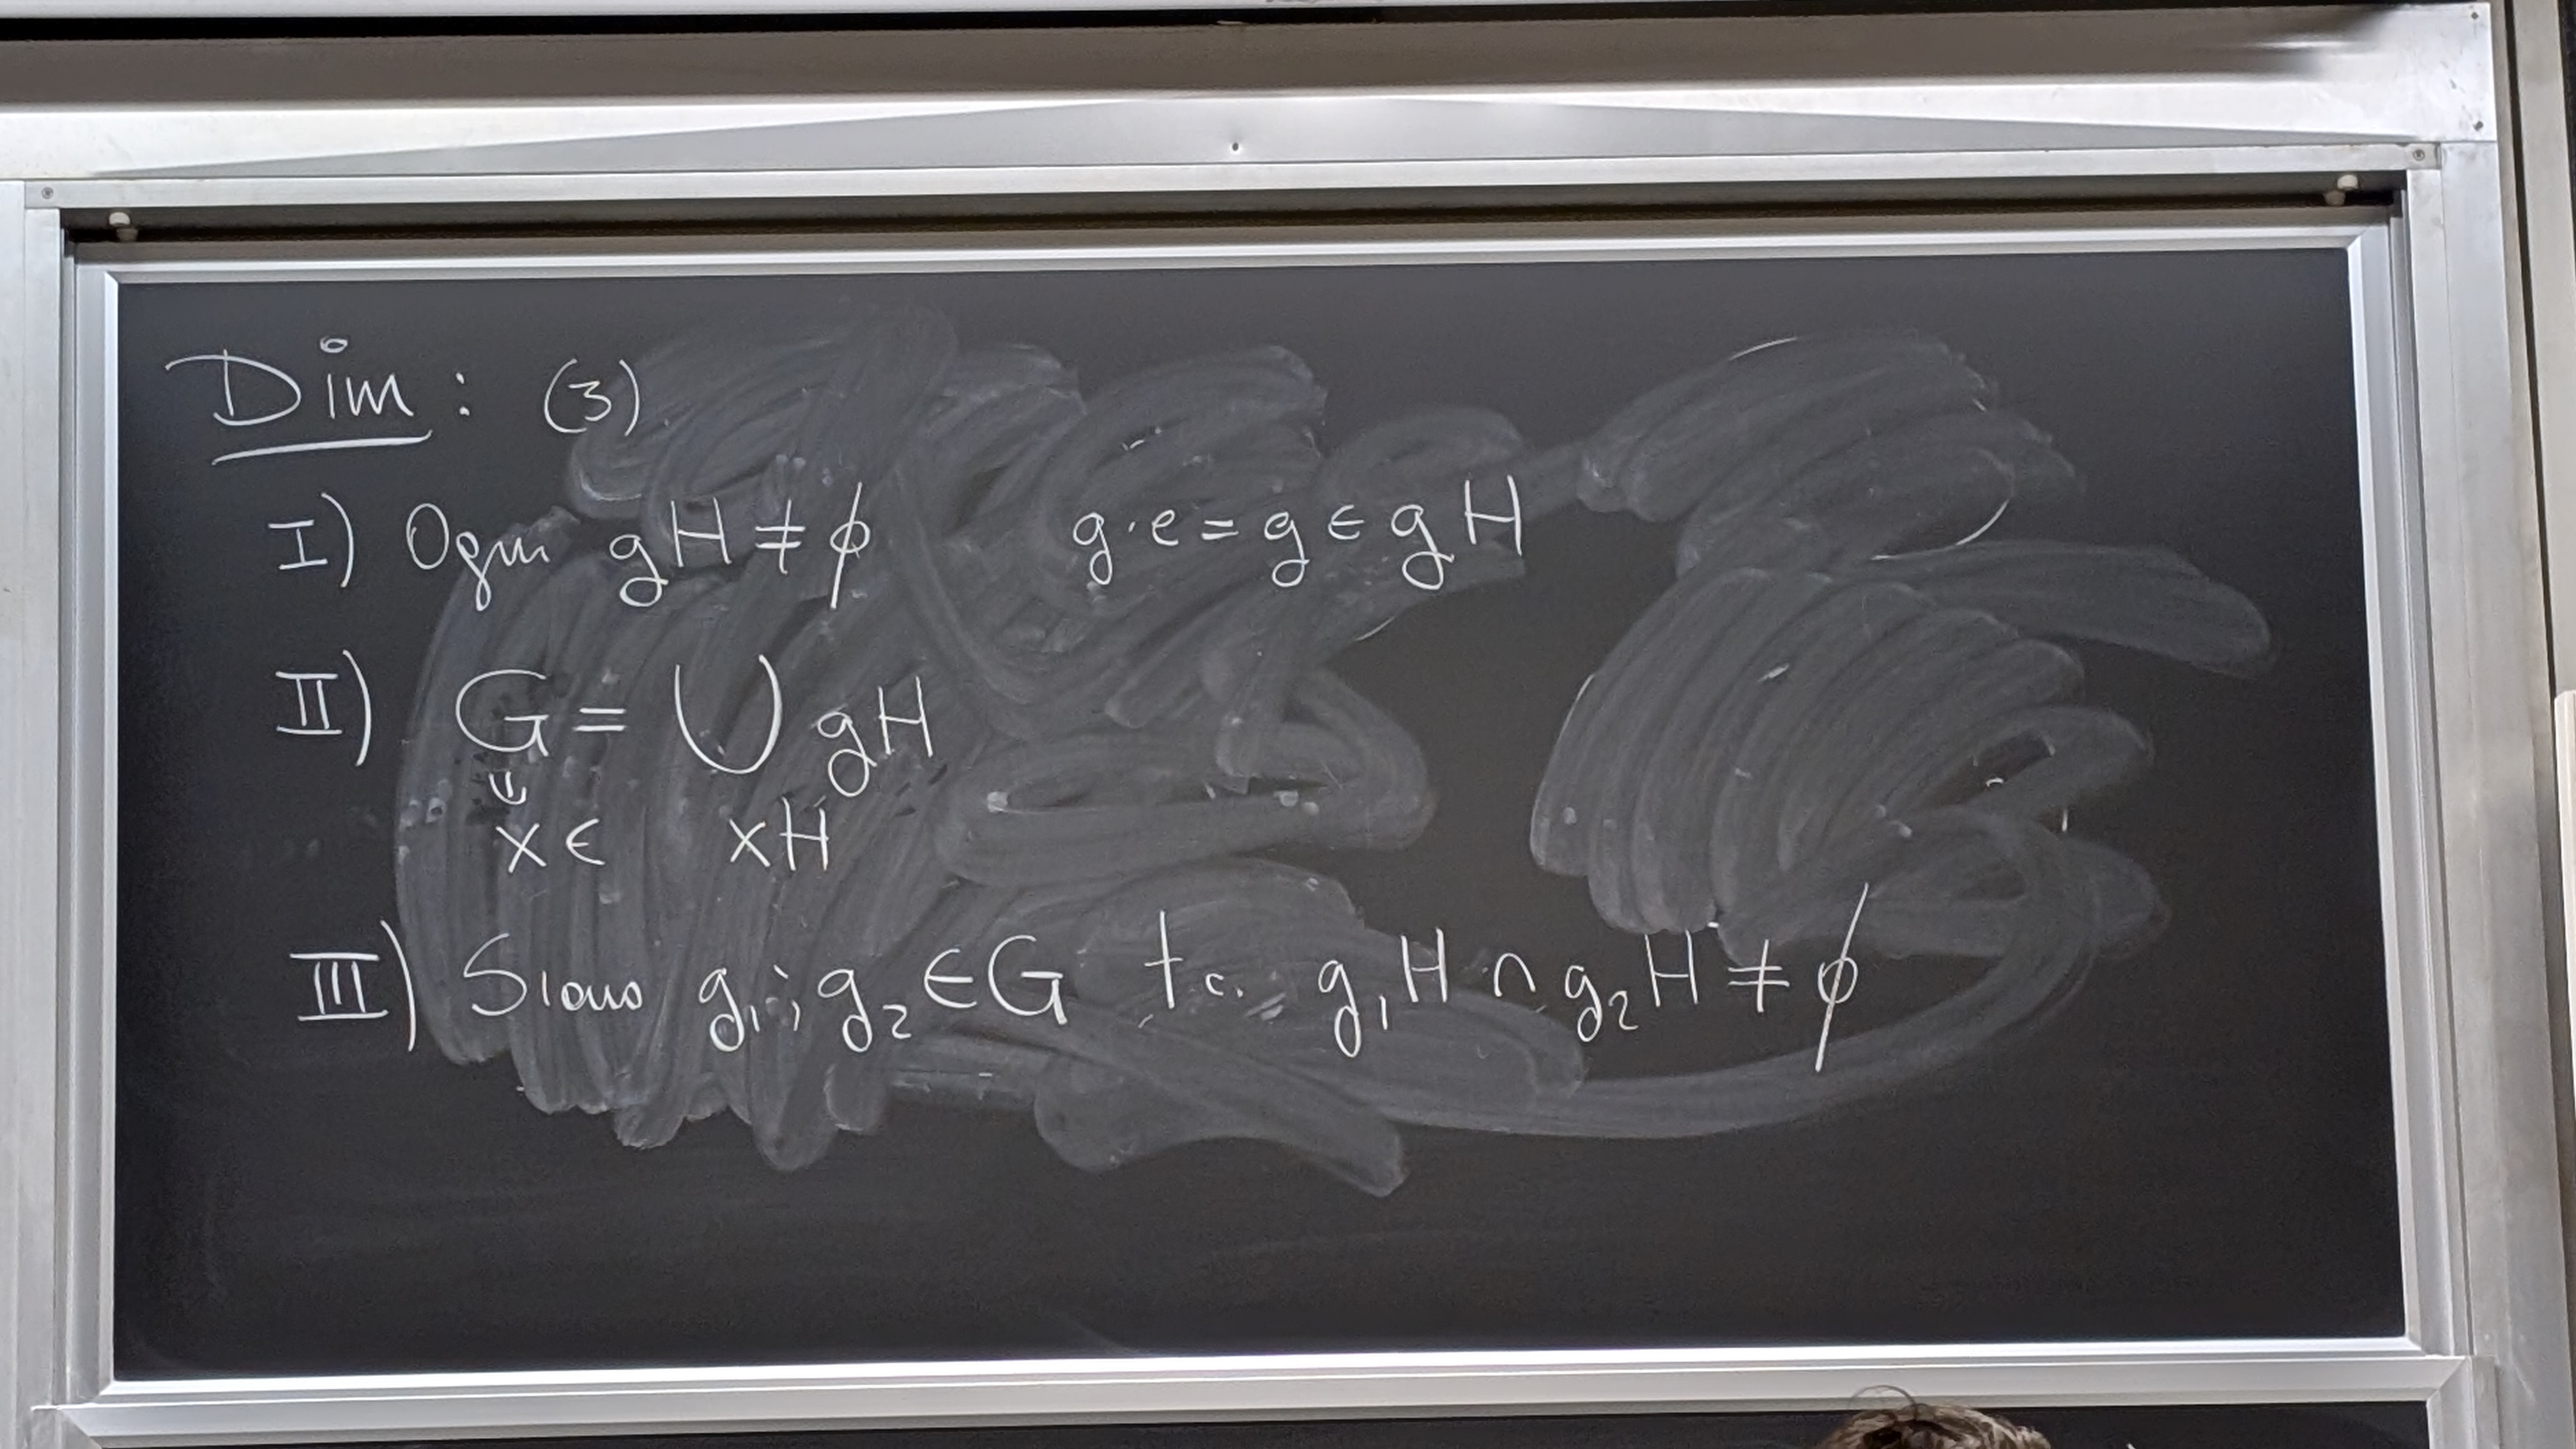 Dim: (3)
I) Ogni gH ≠ ∅ g·e = g ∈ gH
II) G = ⋃ gH
x ∈ xH
III) Siano g₁, g₂ ∈ G t.c. g₁H ∩ g₂H ≠ ∅